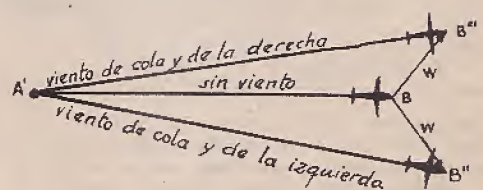 B'''
viento de cola y de la derecha
W
A'
sin viento
B
viento de cola y de la izquierda
W
B"